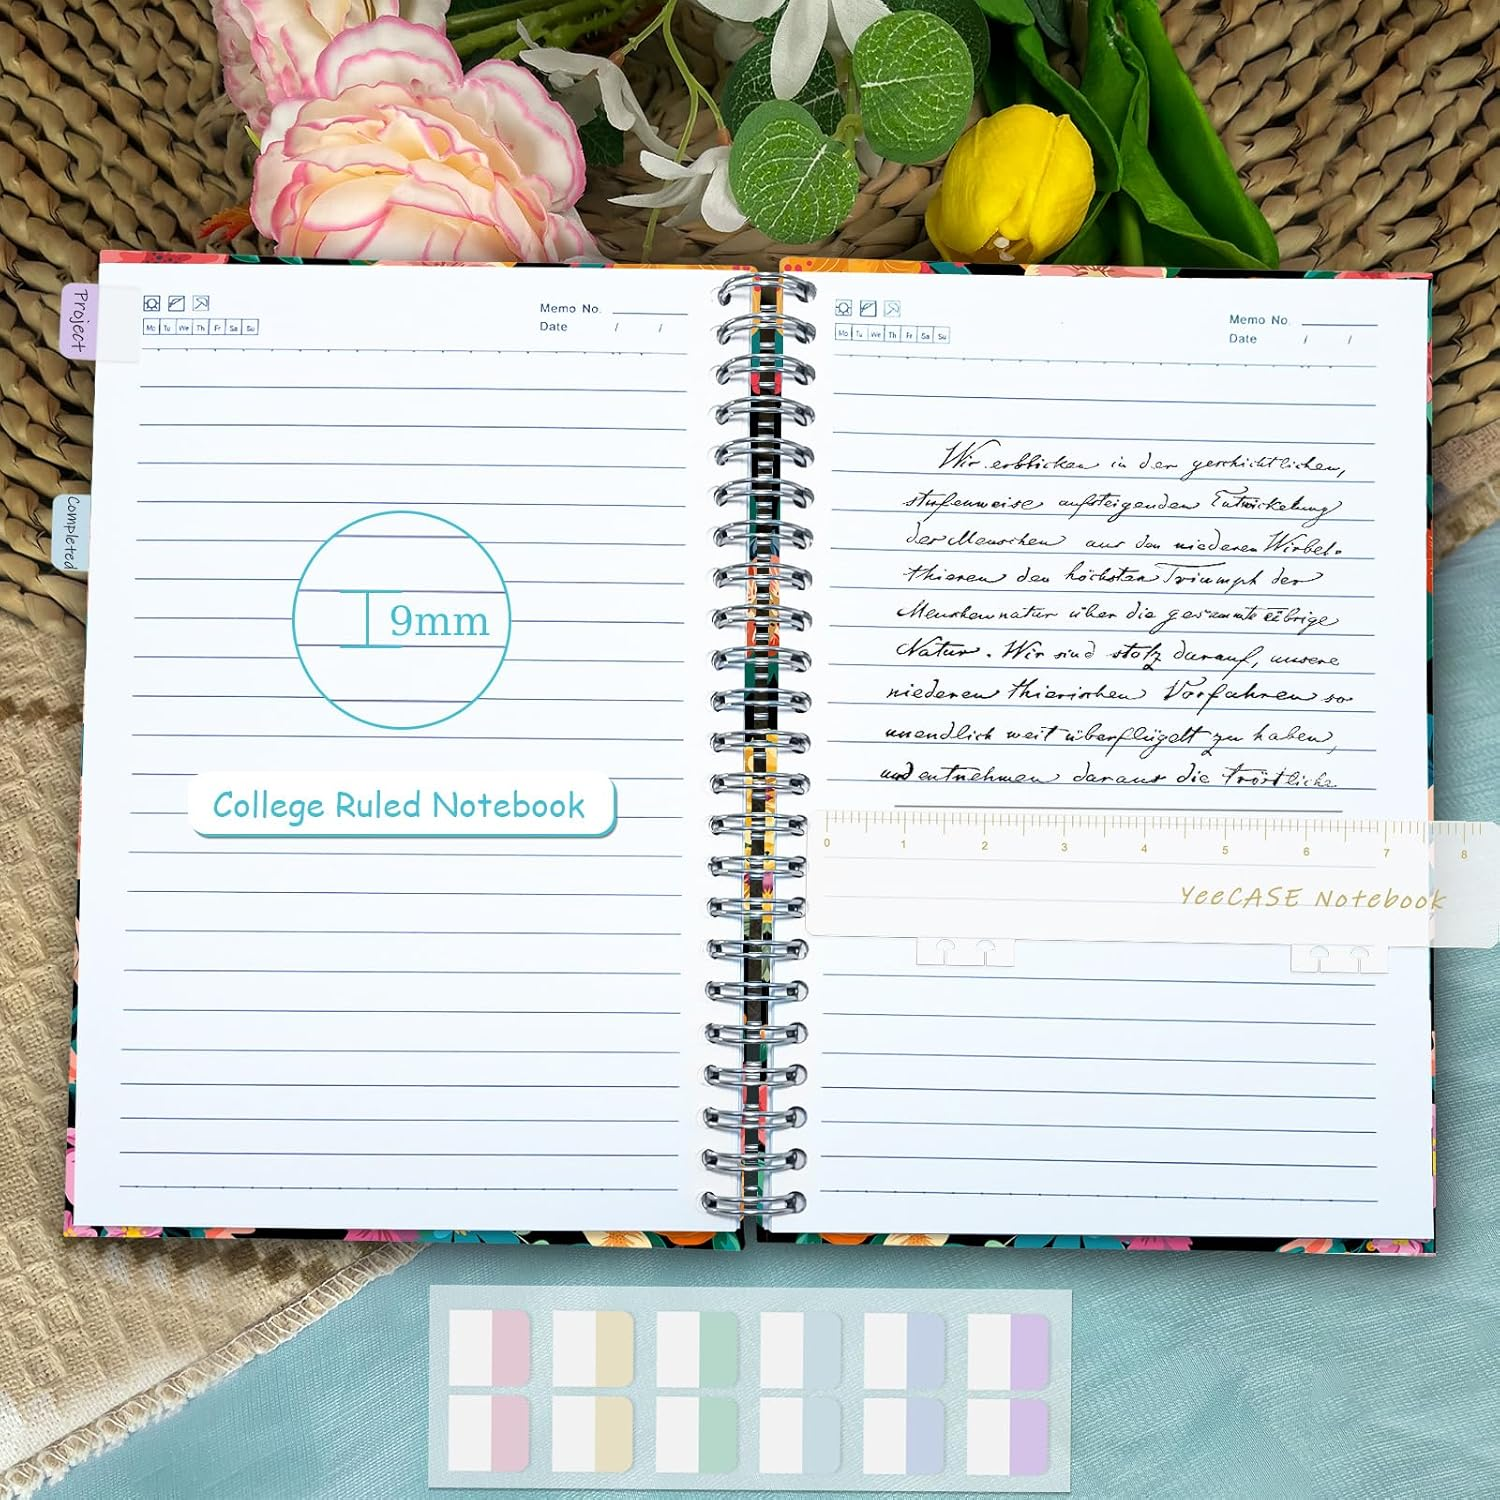 Project
Completed
Mo Tu We Th Fr Sa Su
Memo No.
Date / /
9mm
College Ruled Notebook
Mo Tu We Th Fr Sa Su
Memo No.
Date / /
Wir erblicken in der geschichtlichen,
stufenweise aufsteigenden Entwickelung
der Menschen aus den niederen Wirbel-
thieren den höchsten Triumph der
Menschennatur über die gesammte übrige
Natur. Wir sind stolz darauf, unsere
niederen thierischen Vorfahren so
unendlich weit überflügelt zu haben,
und entnehmen daraus die tröstliche
0 1 2 3 4 5 6 7 8
YeeCASE Notebook